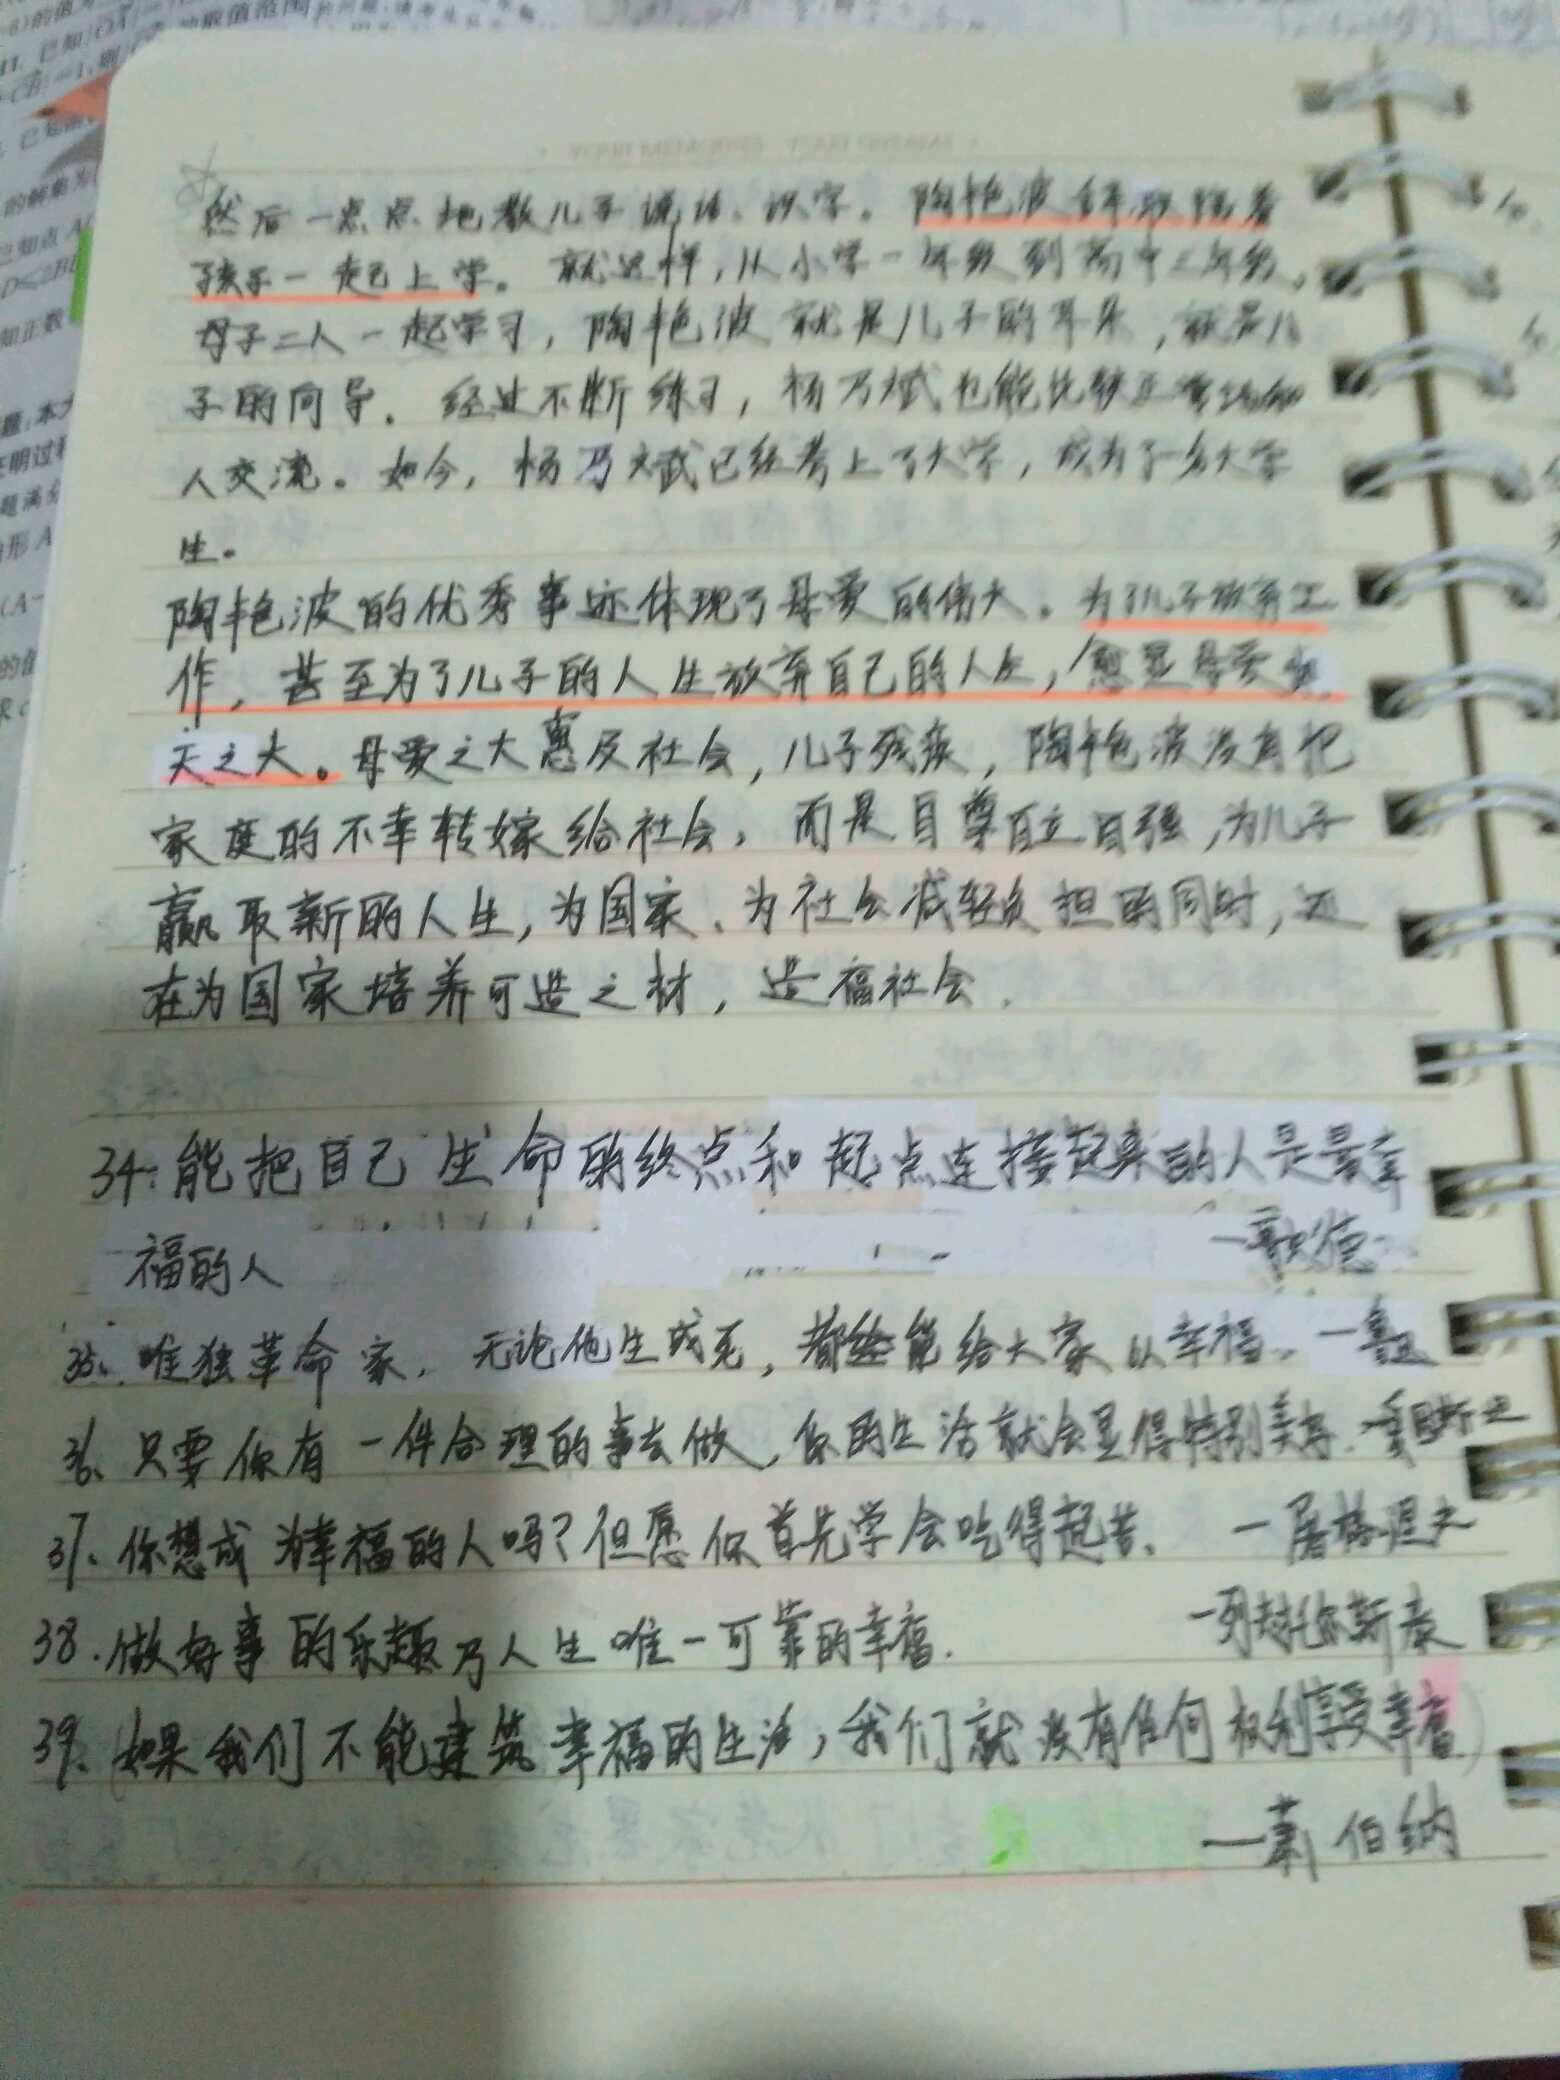 然后一点点地教儿子说话、识字。陶艳波陪着
孩子一起上学。就这样，从小学一年级到高中三年级，
母子二人一起学习，陶艳波就是儿子的耳朵，就是儿
子的向导。经过不断练习，杨乃斌也能比较正常地和
人交流。如今，杨乃斌已经考上了大学，成为了一名大学
生。
陶艳波的优秀事迹体现了母爱的伟大。为了儿子放弃工
作，甚至为了儿子的人生放弃自己的人生，愈显母爱
天之大。母爱之大惠及社会，儿子残疾，陶艳波没有把
家庭的不幸转嫁给社会，而是自尊自立自强，为儿子
赢取新的人生，为国家、为社会减轻负担的同时，还
在为国家培养可造之材，造福社会.
34.能把自己生命的终点和起点连接起来的人是最幸
福的人 —歌德
35、唯独革命家，无论他生或死，都能给大家以幸福。—鲁迅
36、只要你有一件合理的事去做，你的生活就会显得特别美好.
37、你想成为幸福的人吗?但愿你首先学会吃得起苦、—屠格涅夫
38.做好事的乐趣乃人生唯一可靠的幸福. —列夫托尔斯泰
39、(如果我们不能建筑幸福的生活，我们就没有任何权利享受幸福)
—萧伯纳